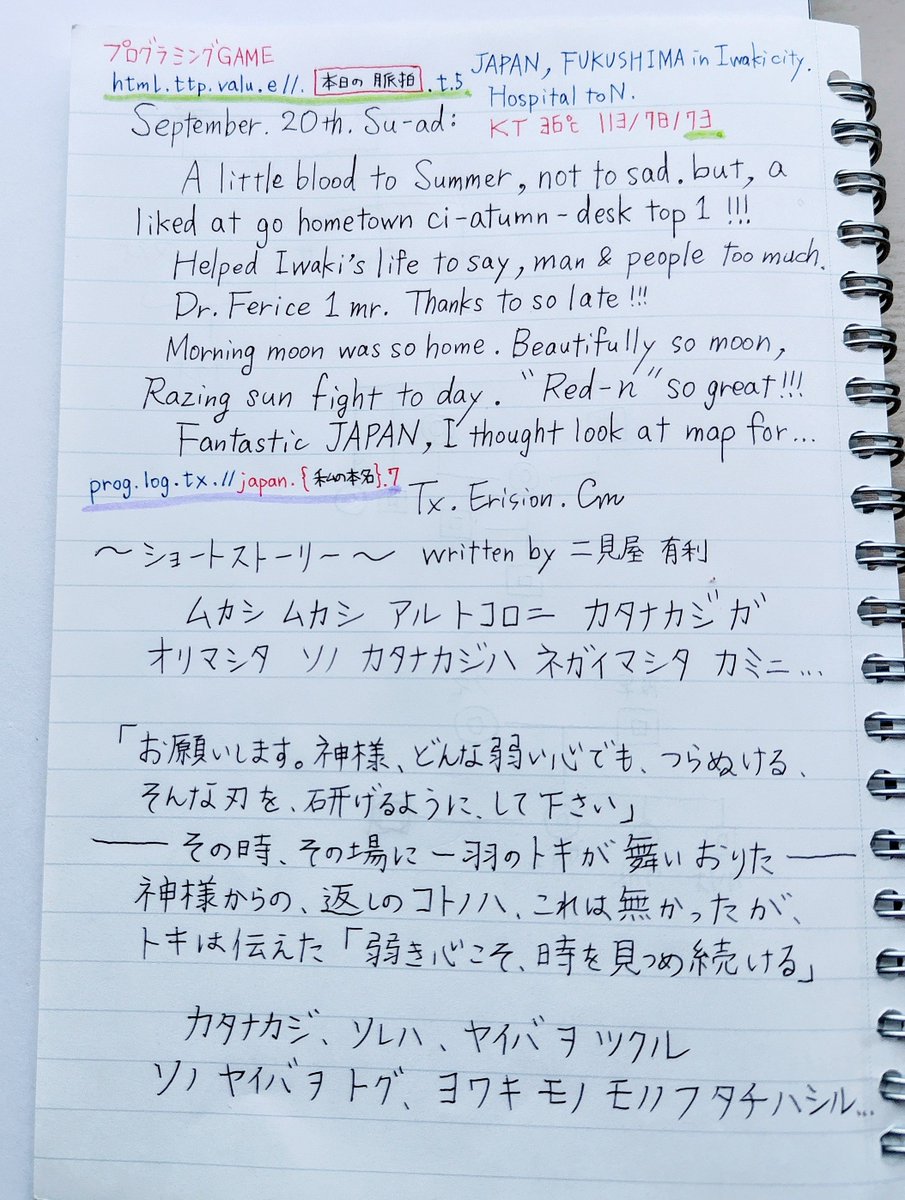 プログラミングGAME
html.ttp.valu.e//.本日の脈拍.t.5
JAPAN, FUKUSHIMA in Iwaki city.
Hospital to N.
KT 36℃ 113/78/73
September. 20th. Su-ad:
A little blood to Summer, not to sad. but, a
liked at go hometown ci-atumn-desk top 1 !!!
Helped Iwaki's life to say, man & people too much.
Dr. Ferice 1 mr. Thanks to so late!!!
Morning moon was so home. Beautifully so moon,
Razing sun fight to day. "Red-n" so great!!!
Fantastic JAPAN, I thought look at map for...
prog.log.tx.//japan.{私の本名}.7
Tx. Erision. Cm
～ショートストーリー～ written by 二見屋 有利
ムカシ ムカシ アル トコロニ カタナカジ ガ
オリマシタ ソノ カタナカジハ ネガイマシタ カミニ...
「お願いします。神様、どんな弱い心でも、つらぬける、
そんな刃を、研げるように、して下さい」
── その時、その場に一羽のトキが舞いおりた ──
神様からの、返しのコトノハ、これは無かったが、
トキは伝えた「弱き心こそ、時を見つめ続ける」
カタナカジ、ソレハ、ヤイバヲ ツクル
ソノ ヤイバヲ トグ、ヨワキ モノ モノノフ タチハシル...